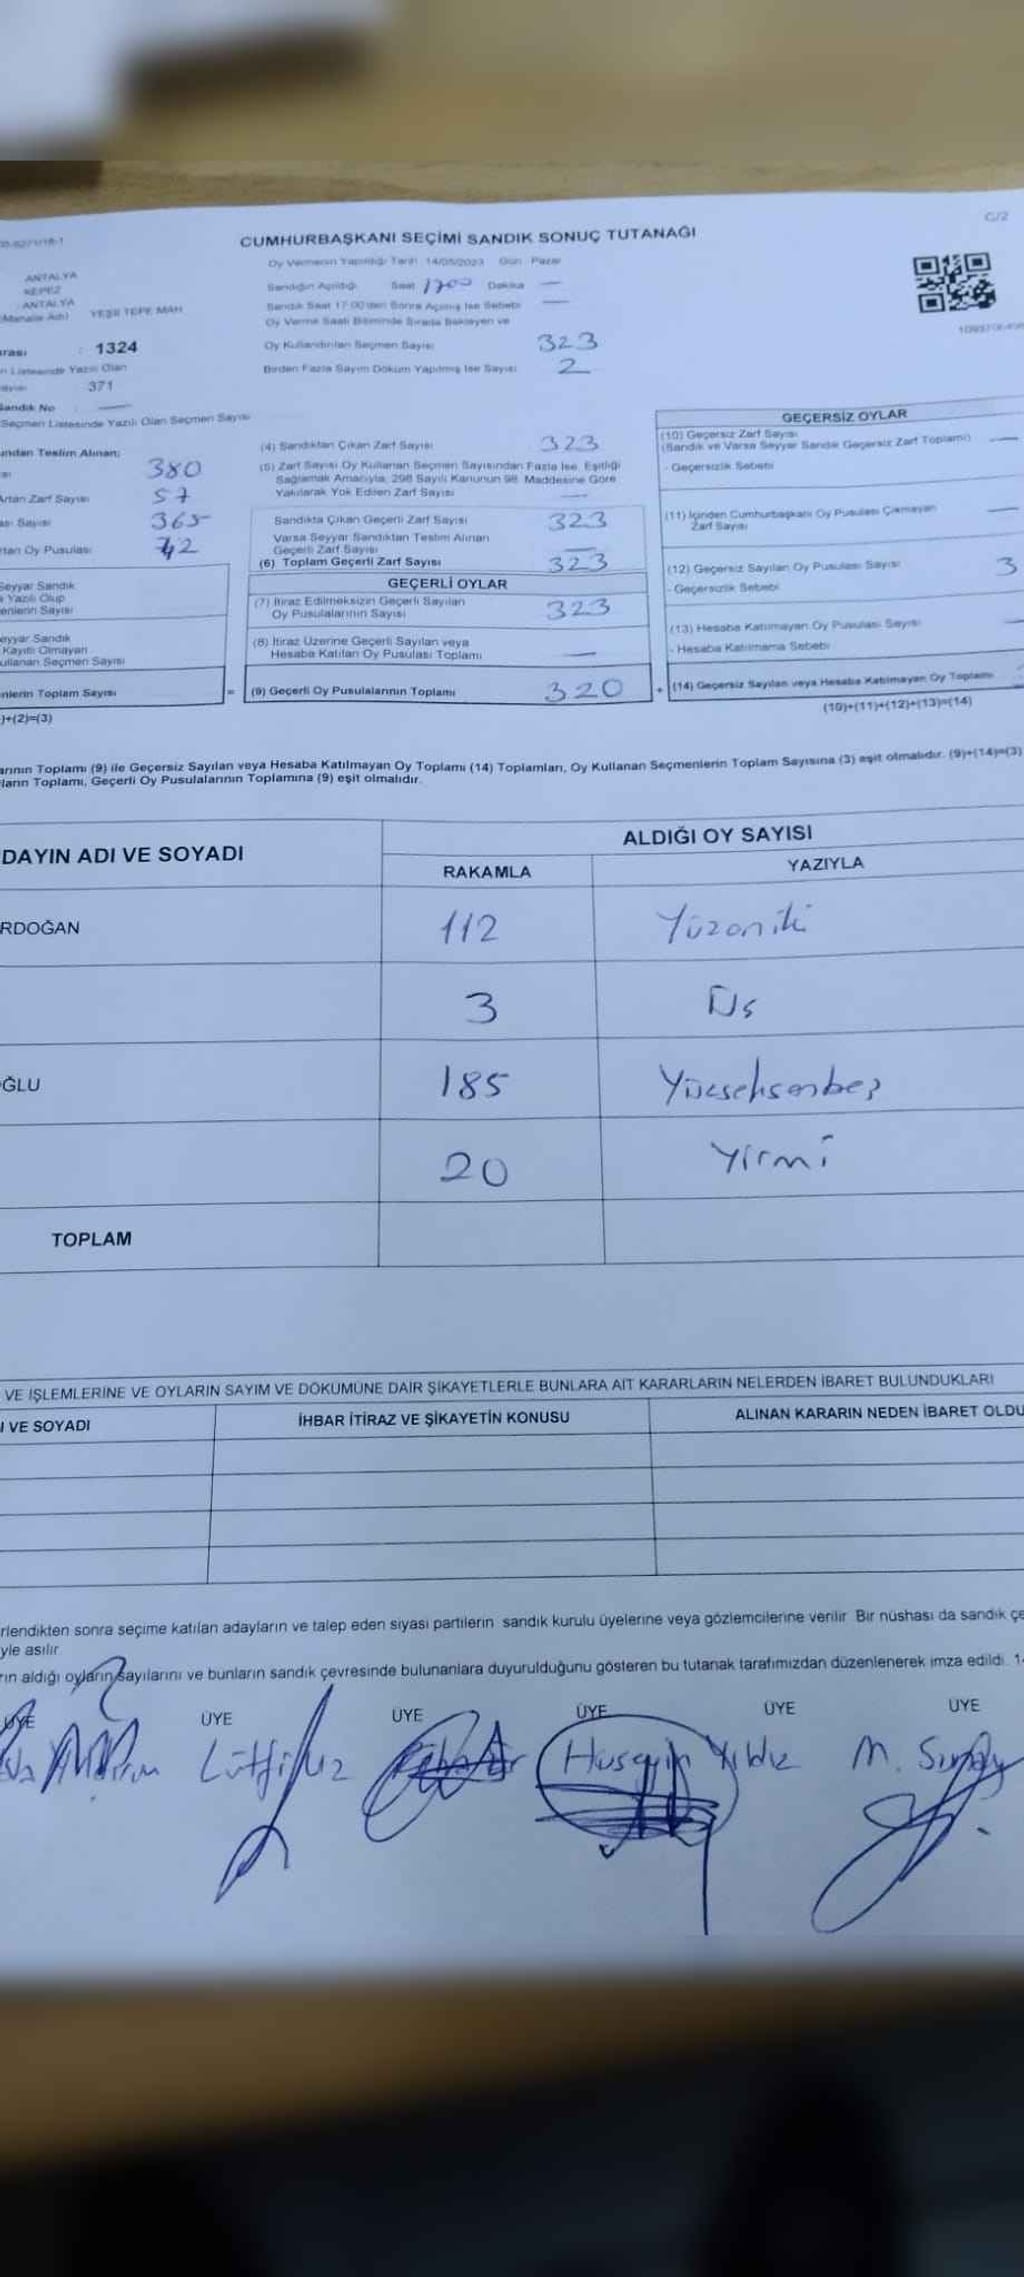 G/2
CUMHURBAŞKANI SEÇİMİ SANDIK SONUÇ TUTANAĞI
Oy Vermenin Yapıldığı Tarih 14/05/2023 Gün Pazar
ANTALYA
KEPEZ
ANTALYA
YEŞİLTEPE MAH
Sandığın Açıldığı Saat 1700 Dakika —
Sandık Saat 17:00'den Sonra Açılmış İse Sebebi —
Oy Verme Saati Bitiminde Sırada Bekleyen ve
Oy Kullandırılan Seçmen Sayısı 323
Birden Fazla Sayım Döküm Yapılmış İse Sayısı 2
rası : 1324
n Listesinde Yazılı Olan
371
Sandık No —
Seçmen Listesinde Yazılı Olan Seçmen Sayısı
ından Teslim Alınan:
380
Artan Zarf Sayısı 57
ası Sayısı 365
rtan Oy Pusulası 42
Seyyar Sandık
Yazılı Olup
enlerin Sayısı
eyyar Sandık
Kayıtlı Olmayan
ullanan Seçmen Sayısı
nlerin Toplam Sayısı
)+(2)=(3)
(4) Sandıktan Çıkan Zarf Sayısı 323
(5) Zarf Sayısı Oy Kullanan Seçmen Sayısından Fazla İse, Eşitliği
Sağlamak Amacıyla, 298 Sayılı Kanunun 98. Maddesine Göre
Yakılarak Yok Edilen Zarf Sayısı —
Sandıkta Çıkan Geçerli Zarf Sayısı 323
Varsa Seyyar Sandıktan Teslim Alınan
Geçerli Zarf Sayısı —
(6) Toplam Geçerli Zarf Sayısı 323
GEÇERLİ OYLAR
(7) İtiraz Edilmeksizin Geçerli Sayılan
Oy Pusulalarının Sayısı 323
(8) İtiraz Üzerine Geçerli Sayılan veya
Hesaba Katılan Oy Pusulası Toplamı —
= (9) Geçerli Oy Pusulalarının Toplamı 320
GEÇERSİZ OYLAR
(10) Geçersiz Zarf Sayısı
(Sandık ve Varsa Seyyar Sandık Geçersiz Zarf Toplamı) —
- Geçersizlik Sebebi
(11) İçinden Cumhurbaşkanı Oy Pusulası Çıkmayan
Zarf Sayısı —
(12) Geçersiz Sayılan Oy Pusulası Sayısı 3
- Geçersizlik Sebebi
(13) Hesaba Katılmayan Oy Pusulası Sayısı —
- Hesaba Katılmama Sebebi
+ (14) Geçersiz Sayılan veya Hesaba Katılmayan Oy Toplamı
(10)+(11)+(12)+(13)=(14)
arının Toplamı (9) ile Geçersiz Sayılan veya Hesaba Katılmayan Oy Toplamı (14) Toplamları, Oy Kullanan Seçmenlerin Toplam Sayısına (3) eşit olmalıdır. (9)+(14)=(3)
ların Toplamı, Geçerli Oy Pusulalarının Toplamına (9) eşit olmalıdır.
DAYIN ADI VE SOYADI
ALDIĞI OY SAYISI
RAKAMLA YAZIYLA
RDOĞAN 112 Yüzoniki
3 Üç
OĞLU 185 Yüzseksenbeş
20 Yirmi
TOPLAM
VE İŞLEMLERİNE VE OYLARIN SAYIM VE DÖKÜMÜNE DAİR ŞİKAYETLERLE BUNLARA AİT KARARLARIN NELERDEN İBARET BULUNDUKLARI
I VE SOYADI İHBAR İTİRAZ VE ŞİKAYETİN KONUSU ALINAN KARARIN NEDEN İBARET OLDU
rlendikten sonra seçime katılan adayların ve talep eden siyasi partilerin sandık kurulu üyelerine veya gözlemcilerine verilir. Bir nüshası da sandık çe
yle asılır.
rın aldığı oyların sayılarını ve bunların sandık çevresinde bulunanlara duyurulduğunu gösteren bu tutanak tarafımızdan düzenlenerek imza edildi. 1
ÜYE ÜYE ÜYE ÜYE ÜYE ÜYE
Hüseyin Yıldız M.